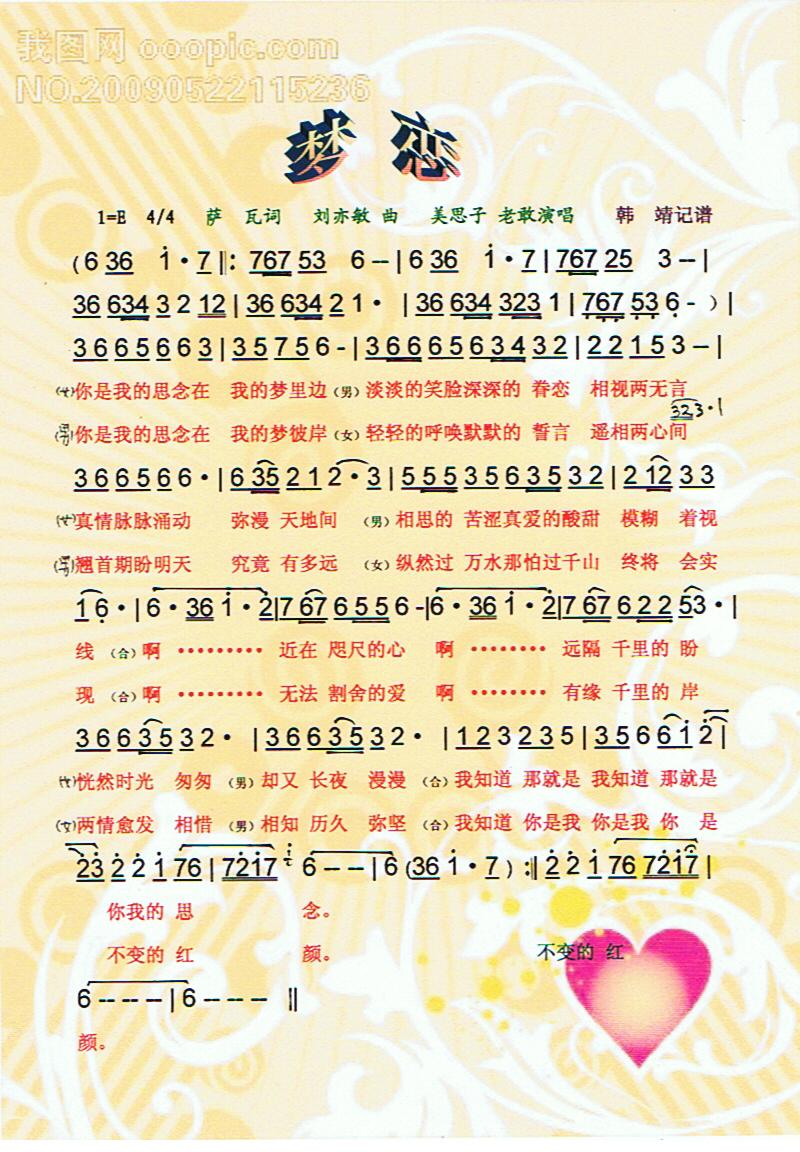 我图网 ooopic.com
NO.20090522115236
梦 恋
1=E 4/4 萨 瓦词 刘亦敏 曲 美思子 老敢演唱 韩 靖记谱
(6 36 i·7‖: 767 53 6--|6 36 i·7|767 25 3--|
36 634 3 2 12|36 634 2 1·|36 634 323 1|767 53 6-)|
3 6 6 5 6 6 3|3 5 7 5 6-|3 6 6 6 5 6 3 4 3 2|2 2 1 5 3--|
(女)你是我的思念在 我的梦里边(男)淡淡的笑脸深深的 眷恋 相视两无言
323·1
(男)你是我的思念在 我的梦彼岸(女)轻轻的呼唤默默的 誓言 遥相两心间
3 6 6 5 6 6·|6 35 2 1 2·3|5 5 5 3 5 6 3 5 3 2|2 12 3 3
(女)真情脉脉涌动 弥漫 天地间 (男)相思的 苦涩真爱的酸甜 模糊 着视
(男)翘首期盼明天 究竟 有多远 (女)纵然过 万水那怕过千山 终将 会实
1 6·|6·36 i·2|7 67 6 5 5 6-|6·36 i·2|7 67 6 2 2 53·|
线 (合)啊 ········· 近在 咫尺的心 啊 ········ 远隔 千里的 盼
现 (合)啊 ········· 无法 割舍的爱 啊 ········ 有缘 千里的 岸
3 6 6 3 5 3 2·|3 6 6 3 5 3 2·|1 2 3 2 3 5|3 5 6 6 i 2|
(女)恍然时光 匆匆 (男)却又 长夜 漫漫 (合)我知道 那就是 我知道 那就是
(女)两情愈发 相惜 (男)相知 历久 弥坚 (合)我知道 你是我 你是我 你 是
23 2 2 1 76|7217 6--|6 (36 i·7):‖2 2 1 76 7217|
你我的 思 念。
不变的 红 颜。 不变的 红
6----|6---‖
颜。